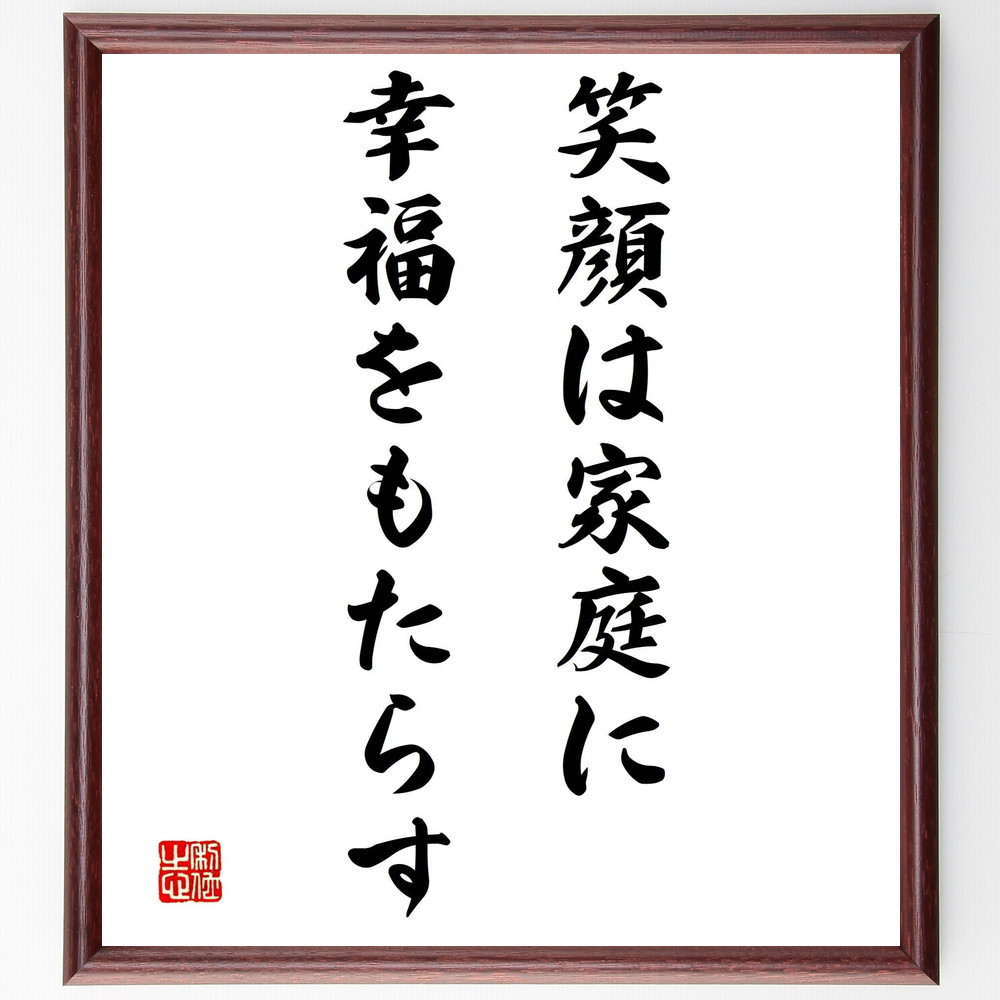 笑顔は家庭に
幸福をもたらす